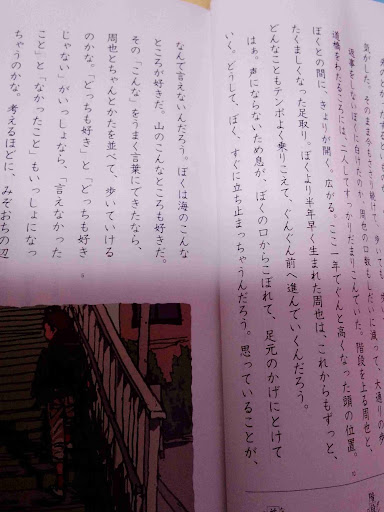 気がした。そのまま今も
返事をしないぼくに白けたのか、周也の口数もしだいに減って、大通りの歩
道橋をわたるころには、二人してすっかりだまりこんでいた。階段を上る周也と、
ぼくとの間に、きょりが開く。広がる。ここ一年でぐんと高くなった頭の位置。
たくましくなった足取り。ぼくより半年早く生まれた周也は、これからもずっと、
どんなこともテンポよく乗りこえて、ぐんぐん前へ進んでいくんだろう。
はぁ。声にならないため息が、ぼくの口からこぼれて、足元のかげにとけて
いく。どうして、ぼく、すぐに立ち止まっちゃうんだろう。思っていることが、
なんで言えないんだろう。ぼくは海のこんな
ところが好きだ。山のこんなところも好きだ。
その「こんな」をうまく言葉にできたなら、
周也とちゃんとかたを並べて、歩いていける
のかな。「どっちも好き」と「どっちも好き
じゃない」がいっしょなら、「言えなかった
こと」と「なかったこと」もいっしょになっ
ちゃうのかな。考えるほどに、みぞおちの辺